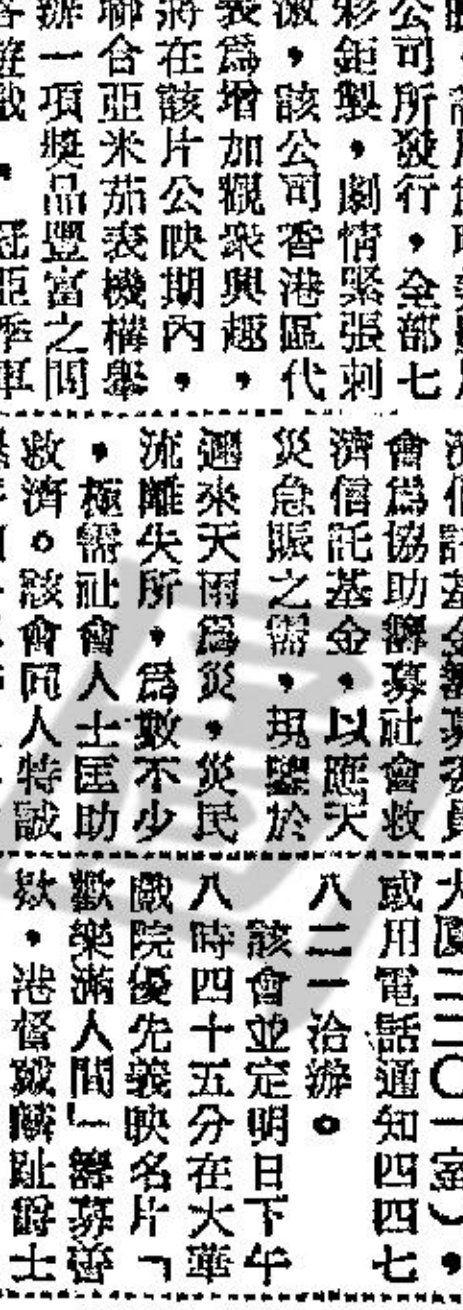 公司所發行，全部七
彩鉅製，劇情緊張刺
激，該公司香港區代
表爲增加觀衆興趣，
將在該片公映期內，
聯合亞米茄表機構舉
辦一項獎品豐富之問
答遊戲，冠亞季軍
濟信託基金籌募委員
會爲協助籌募社會救
濟信託基金，以應天
災急賑之需，現鑒於
邇來天雨爲災，災民
流離失所，爲數不少
，極需社會人士匡助
救濟。該會同人特誠
大廈二二〇一室），
或用電話通知四四七
八二一洽辦。
該會並定明日下午
八時四十五分在大華
戲院優先義映名片「
歡樂滿人間」籌募善
欵，港督戴麟趾爵士